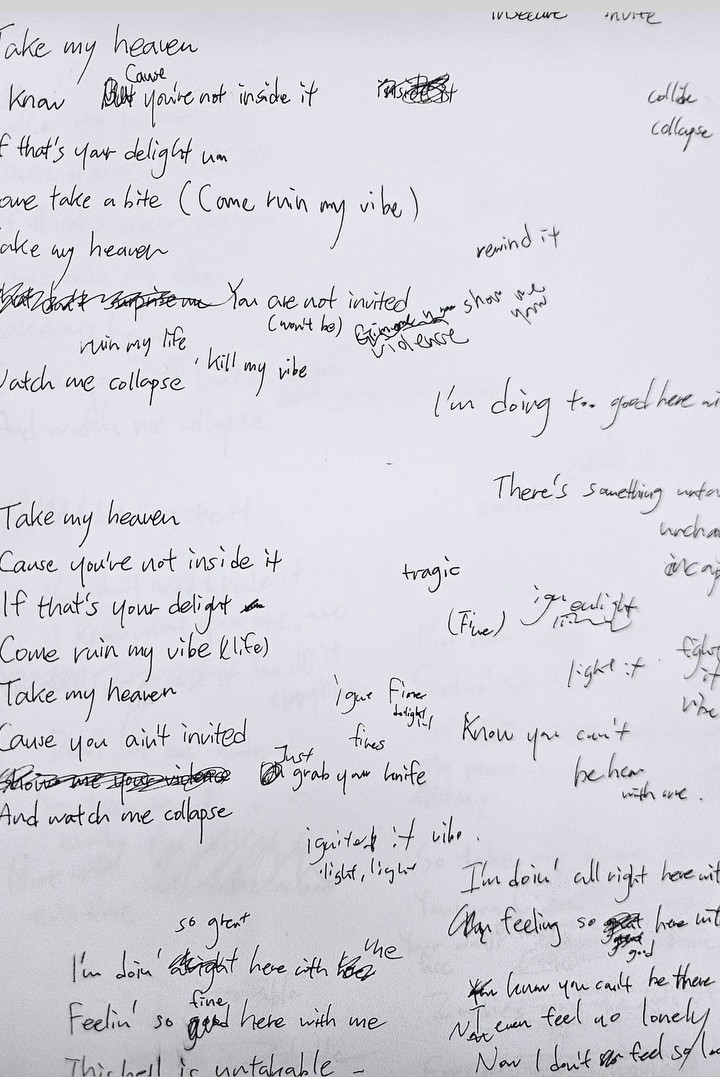 insecure invite
Take my heaven
Know Cause you're not inside it
inside it
collide
collapse
f that's your delight um
ome take a bite (Come ruin my vibe)
ake my heaven
remind it
surprise me You are not invited
(won't be)
show me your
violence
ruin my life
kill my vibe
Watch me collapse
I'm doing too good here wi
Take my heaven
Cause you're not inside it
If that's your delight
Come ruin my vibe (life)
Take my heaven
Cause you ain't invited
Just grab your knife
And watch me collapse
There's something unta
uncha
incap
tragic
(Fine)
light it
fight
it
vibe
Fine
delight
fines
Know you can't
be here
with me.
ignited it vibe.
light, light
I'm doin' all right here wit
feeling so good here wit
know you can't be there
Not even feel no lonely
Now I don't feel so lo
so great
I'm doin' here with the
Feelin' so fine here with me
This hell is untakable -